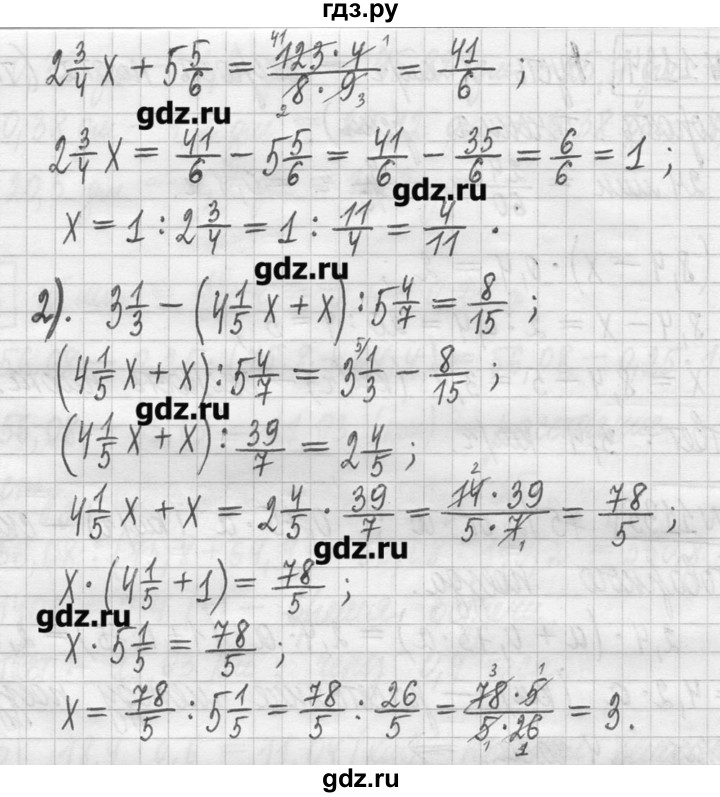 гдз.ру
2 3/4 x + 5 5/6 = 123 · 4 / 8 · 9 = 41/6 ;
41 1 2 3
gdz.ru
2 3/4 x = 41/6 − 5 5/6 = 41/6 − 35/6 = 6/6 = 1 ;
gdz.ru
x = 1 : 2 3/4 = 1 : 11/4 = 4/11 .
gdz.ru
2). 3 1/3 − (4 1/5 x + x) : 5 4/7 = 8/15 ;
(4 1/5 x + x) : 5 4/7 = 3 5/ 1/3 − 8/15 ;
gdz.ru
(4 1/5 x + x) : 39/7 = 2 4/5 ;
4 1/5 x + x = 2 4/5 · 39/7 = 14 · 39 / 5 · 7 = 78/5 ;
2 1
gdz.ru
x · (4 1/5 + 1) = 78/5 ;
gdz.ru
x · 5 1/5 = 78/5 ;
x = 78/5 : 5 1/5 = 78/5 : 26/5 = 78 · 5 / 5 · 26 = 3.
3 1 1 1
gdz.ru